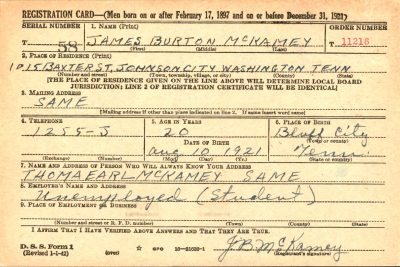 REGISTRATION CARD—(Men born on or after February 17, 1897 and on or before December 31, 1921)
SERIAL NUMBER 1. NAME (Print) ORDER NUMBER
T 58 JAMES BURTON MCKAMEY 11216
(First) (Middle) (Last)
2. PLACE OF RESIDENCE (Print)
1015 BAXTER ST. JOHNSON CITY WASHINGTON TENN
(Number and street) (Town, township, village, or city) (County) (State)
[THE PLACE OF RESIDENCE GIVEN ON THE LINE ABOVE WILL DETERMINE LOCAL BOARD
JURISDICTION; LINE 2 OF REGISTRATION CERTIFICATE WILL BE IDENTICAL]
3. MAILING ADDRESS
SAME
[Mailing address if other than place indicated on line 2. If same insert word same]
4. TELEPHONE 5. AGE IN YEARS 6. PLACE OF BIRTH
1255-J 20 Bluff City
DATE OF BIRTH (Town or county)
Aug 10 1921 Tenn.
(Exchange) (Number) (Mo.) (Day) (Yr.) (State or country)
7. NAME AND ADDRESS OF PERSON WHO WILL ALWAYS KNOW YOUR ADDRESS
THOMAEARL MCKAMEY SAME
8. EMPLOYER'S NAME AND ADDRESS
Unemployed (Student)
9. PLACE OF EMPLOYMENT OR BUSINESS
(Number and street or R. F. D. number) (Town) (County) (State)
I AFFIRM THAT I HAVE VERIFIED ABOVE ANSWERS AND THAT THEY ARE TRUE.
D. S. S. Form 1 GPO 16-21630-1 J B McKamey
(Revised 1-1-42) (over) (Registrant's signature)